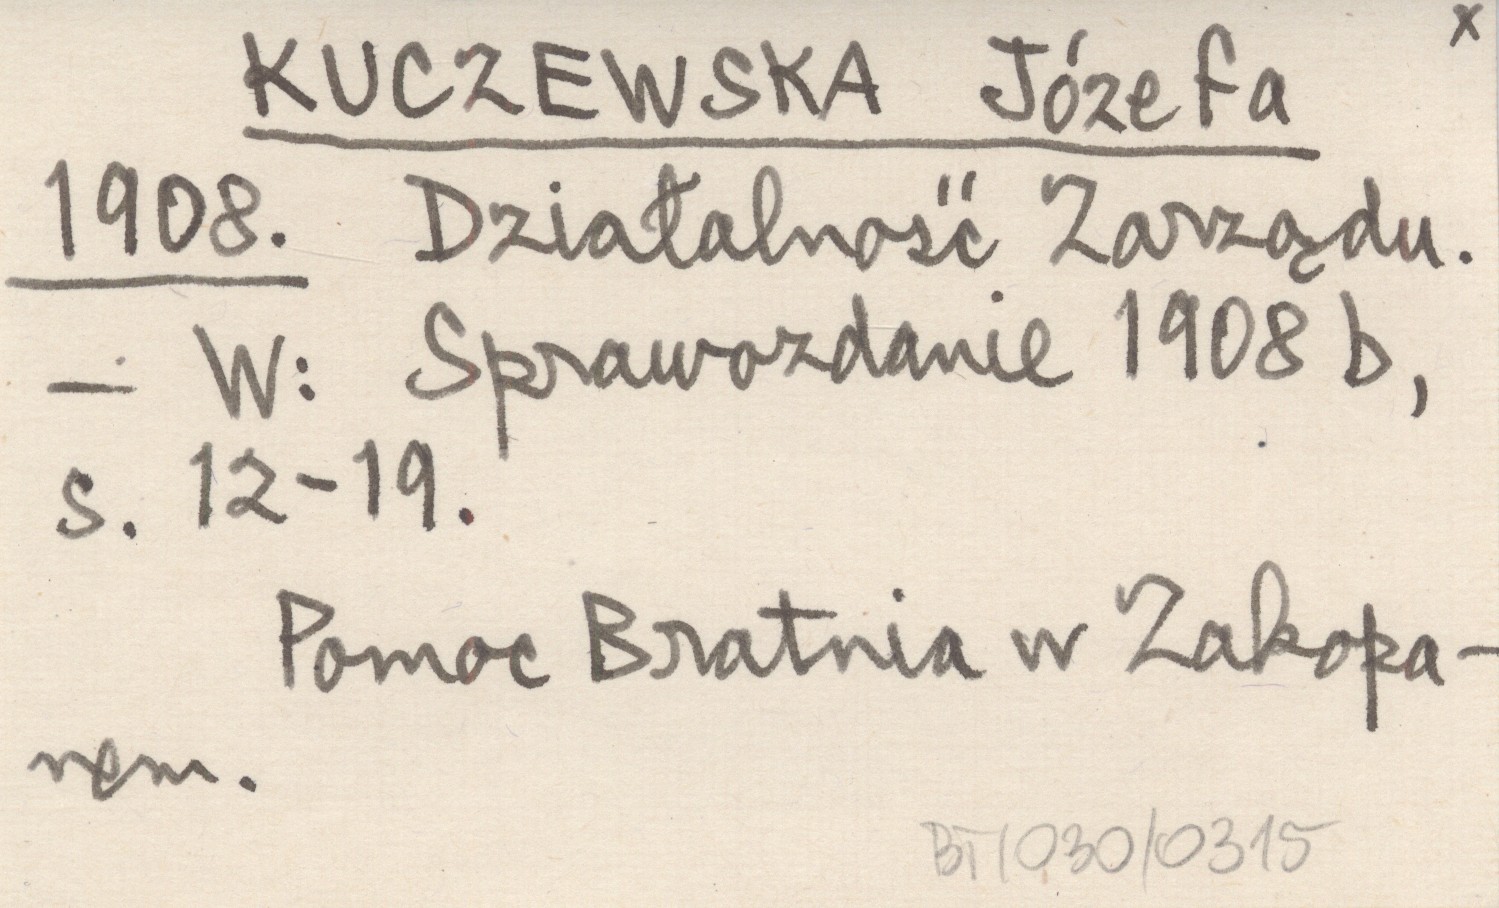 x
KUCZEWSKA Józefa
1908. Działalność Zarządu.
— W: Sprawozdanie 1908 b,
s. 12-19.
Pomoc Bratnia w Zakopa-
nem.
BT/030/0315